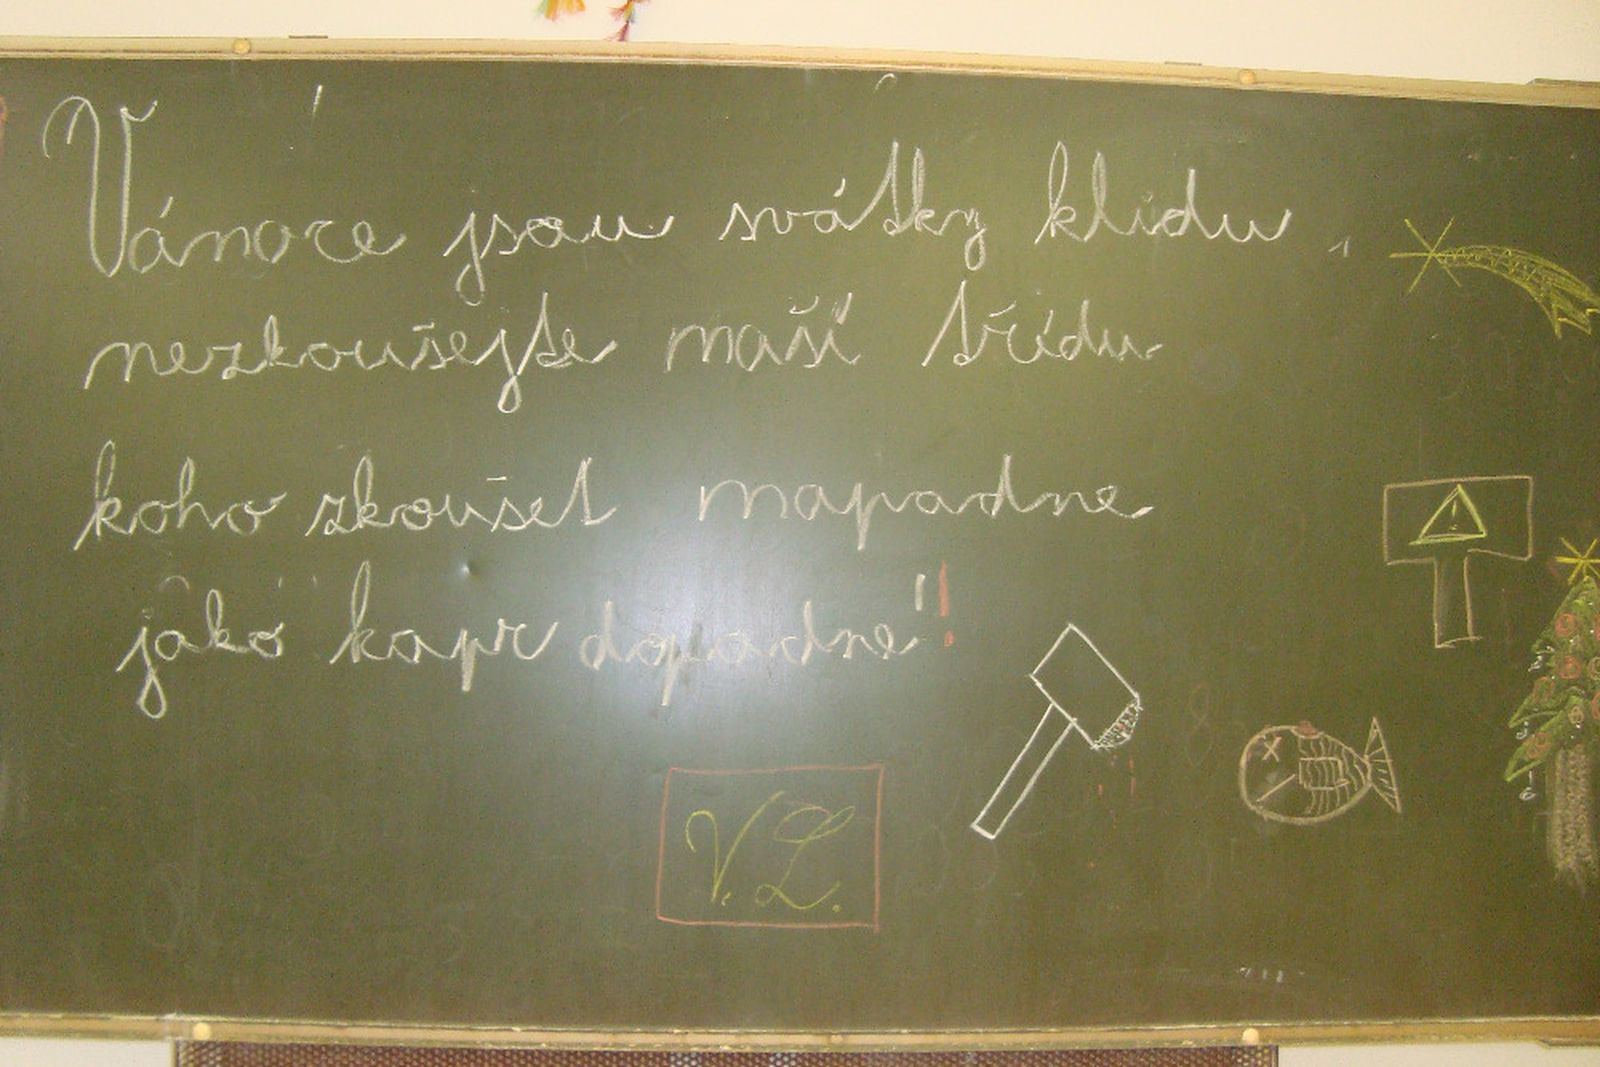 Vánoce jsou svátky klidu,
nezkoušejte naší třídu
koho zkoušet napadne
jako kapr dopadne!
V. L.